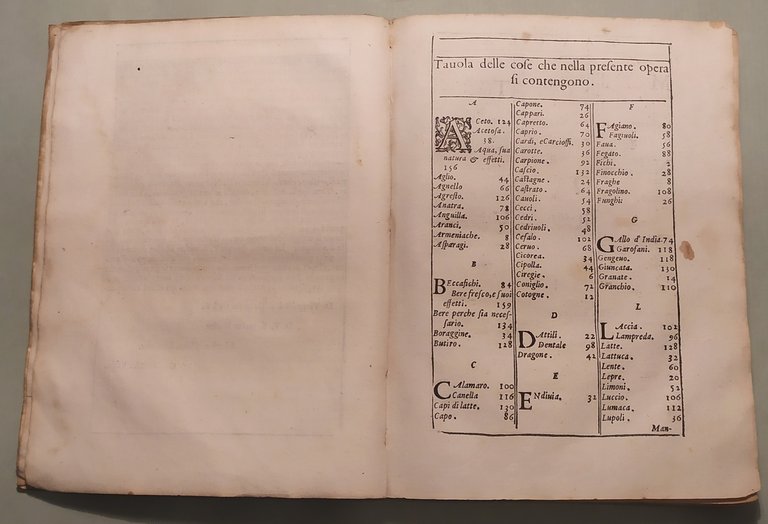 Tauola delle cose che nella presente opera
si contengono.
A
ACeto. 124
Acetosa.
38.
Aqua, sua
natura & effetti.
156
Aglio. 44
Agnello 66
Agresto. 126
Anatra. 78
Anguilla. 106
Aranci. 50
Armeniache. 8
Asparagi. 28
B
BEccafichi. 84
Bere fresco, e suoi
effetti. 159
Bere perche sia neces-
sario. 134
Boraggine. 34
Butiro. 128
C
CAlamaro. 100
Canella 116
Capi di latte. 130
Capo. 86
Capone. 74
Cappari. 26
Capretto. 64
Caprio. 70
Cardi, e Carcioffi. 30
Carotte. 36
Carpione. 92
Cascio. 132
Castagne. 24
Castrato. 64
Cauoli. 54
Cecci. 58
Cedri. 52
Cedriuoli. 48
Cefalo. 102
Ceruo. 68
Cicorea. 34
Cipolla. 44
Ciregie. 6
Coniglio. 72
Cotogne. 12
D
DAttili. 22
Dentale 98
Dragone. 42
E
ENdiuia. 32
F
FAgiano. 80
Fagiuoli. 58
Faua. 56
Fegato. 88
Fichi. 2
Finocchio. 28
Fraghe 8
Fragolino. 108
Funghi: 26
G
GAllo d'India. 74
Garofani. 118
Gengeuo. 118
Giuncata. 130
Granate. 14
Granchio. 110
L
LAccia. 102
Lampreda. 96
Latte. 128
Lattuca. 32
Lente. 60
Lepre. 20
Limoni. 52
Luccio. 106
Lumaca. 112
Lupoli. 36
Man-